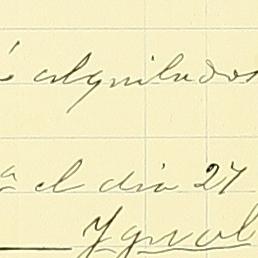 é alquilados
a el dia 27
Ygual